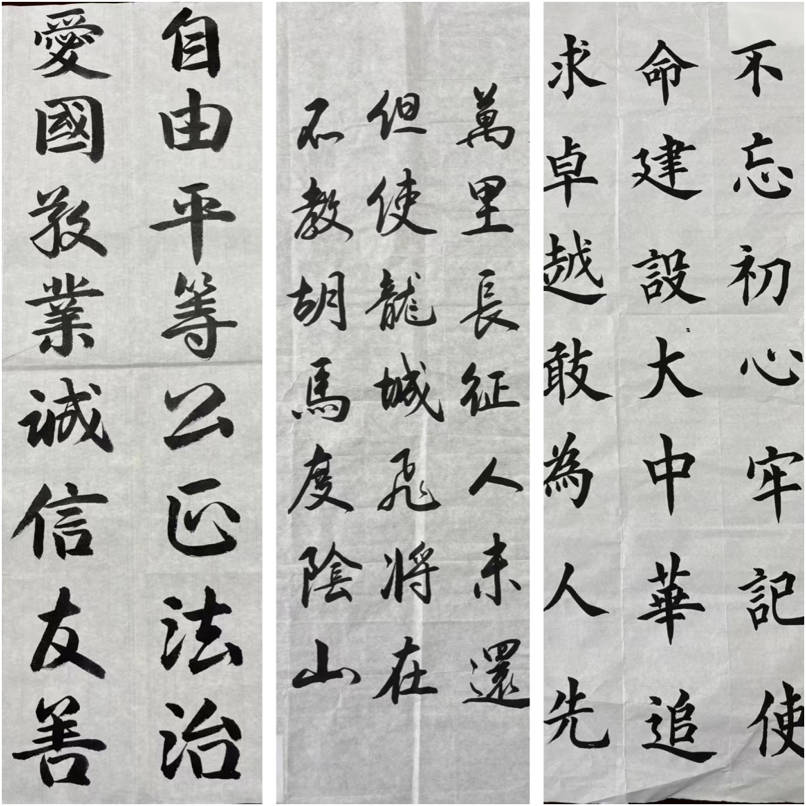 自由平等公正法治
愛國敬業誠信友善
萬里長征人未還
但使龍城飛將在
不教胡馬度陰山
不忘初心牢記使
命建設大中華追
求卓越敢為人先